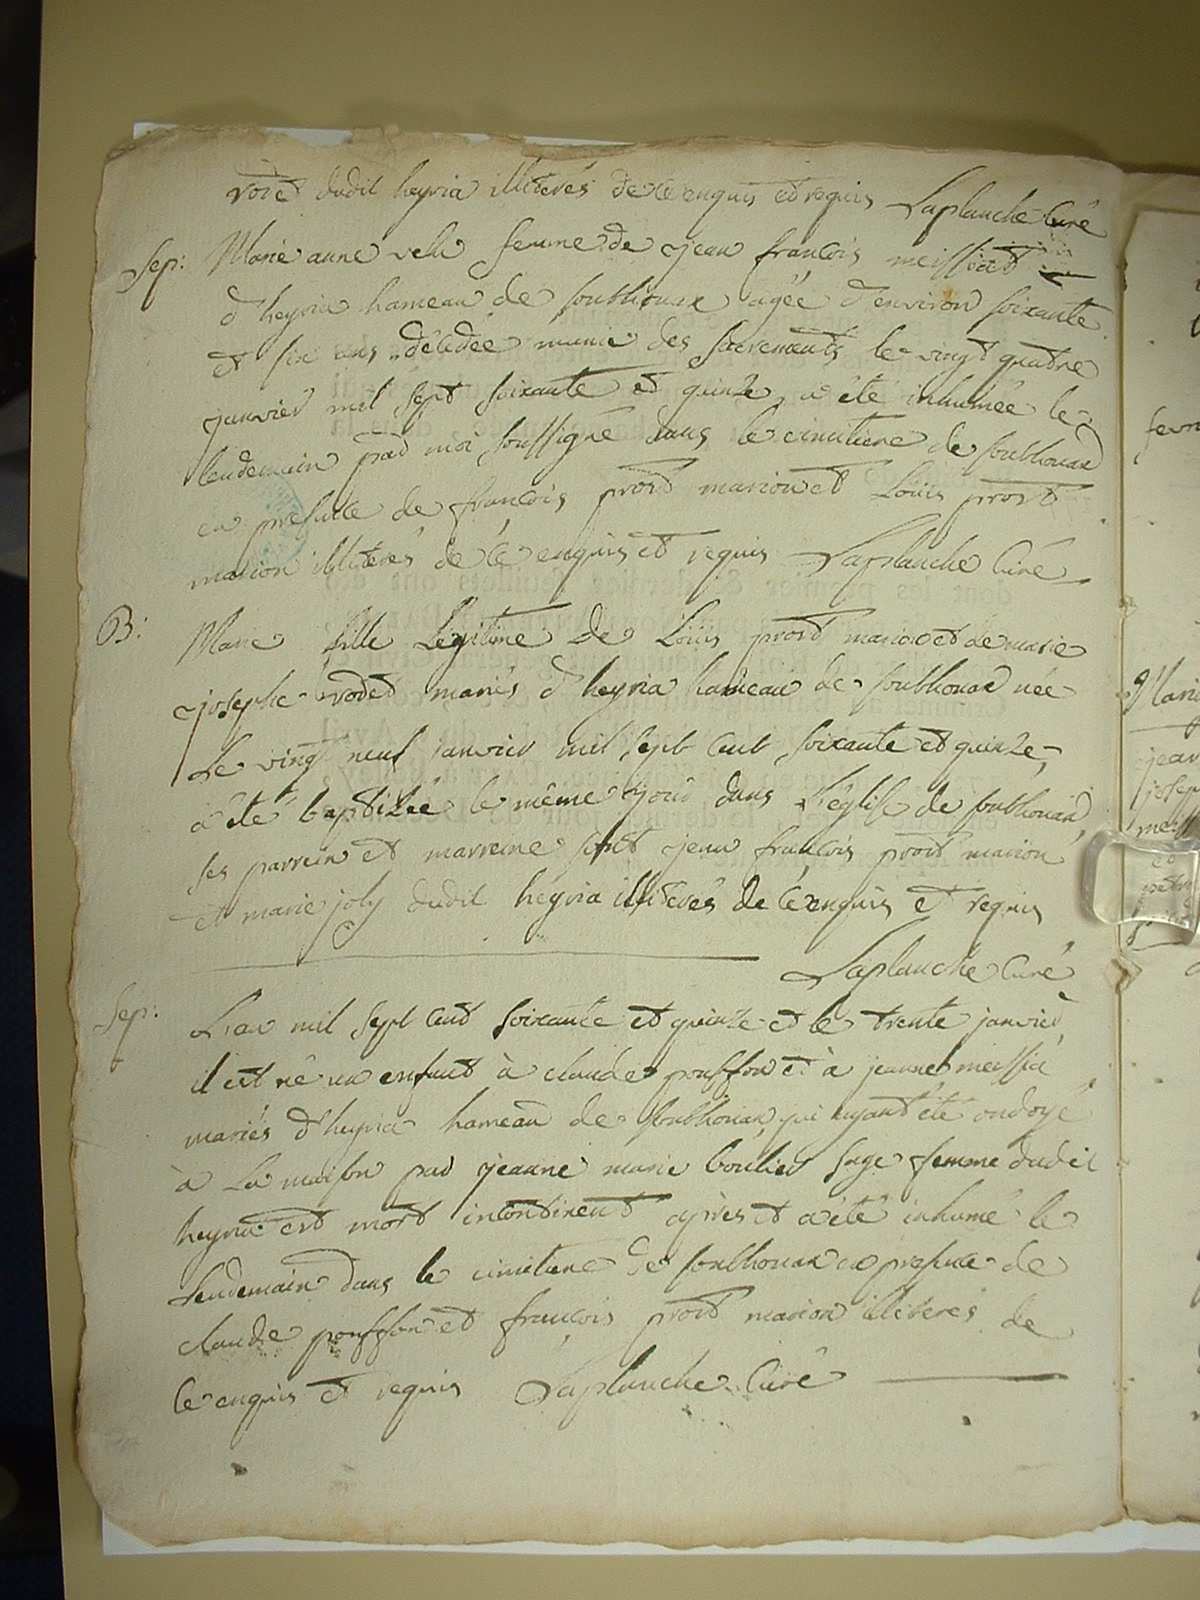 rodet dudit heyria illiterés de ce enquis et requis Laplanche Curé
Sep: Marie anne velu femme de jean françois meissiat
d'heyria hameau de soubhouax agée d'environ soixante
et six ans décédée munie des sacrements le vingt quatre
janvier mil sept soixante et quinze a été inhumée le
lendemain par moi soussigné dans le cimetiere de soubhouax
en presence de françois prost marion et Louis prost
marion illiterés de ce enquis et requis Laplanche Curé
B: Marie fille Legitime de Louis prost marion et de marie
josephe rodet mariés d'heyria hameau de soubhouax née
Le vingt neuf janvier mil sept cent soixante et quinze
a été baptizée le même jour dans L'église de soubhouax,
ses parrein et marreine sont jean françois prost marion
et marie joly dudit heyria illiterés de ce enquis et requis
Laplanche Curé
Sep: L'an mil sept cent soixante et quinze et le trente janvier
il est né un enfant à claude pouffon et à jeanne meissia
mariés d'heyria hameau de soubhouax, qui ayant été ondoyé
à La maison par jeanne marie boulier sage femme dudit
heyria est mort incontinent après et a été inhumé le
Lendemain dans le cimetiere de soubhouax en presence de
claude pouffon et françois prost marion illiterés de
ce enquis et requis Laplanche Curé
fevri
Marie
jean
joseph